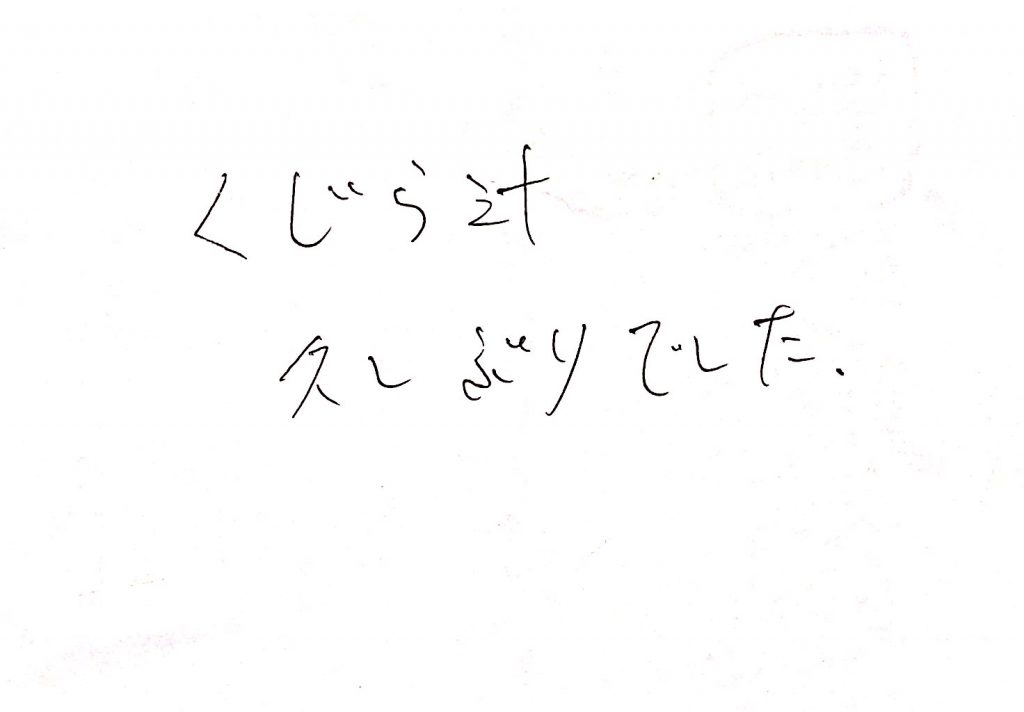 くじら計
久しぶりでした.